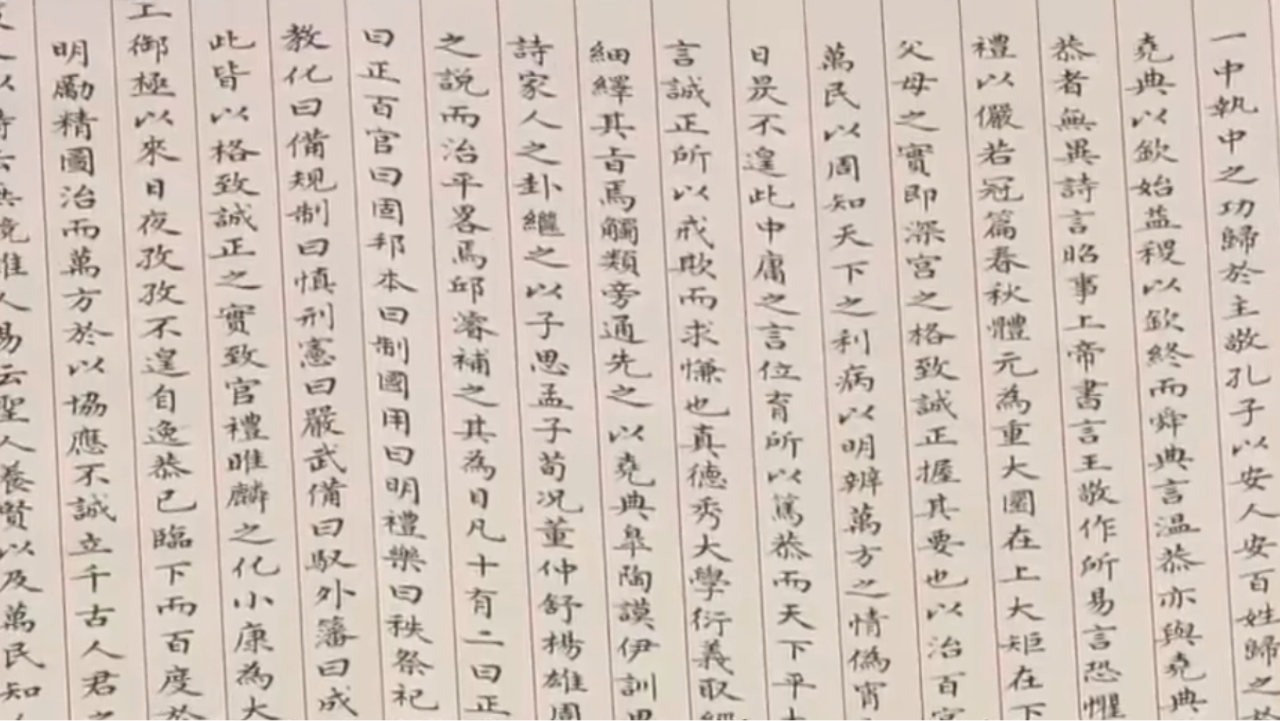 一中執中之功歸於主敬孔子以安人安百姓歸之
堯典以欽始益稷以欽終而舜典言温恭亦與堯典
恭者無異詩言昭事上帝書言王敬作所易言恐懼
禮以儼若冠篇春秋體元為重大圜在上大矩在下
父母之實即深宮之格致誠正握其要也以治百官
萬民以周知天下之利病以明辨萬方之情偽宵
日昃不遑此中庸之言位育所以篤恭而天下平
言誠正所以戒欺而求慊也真德秀大學衍義取經
細繹其旨焉觸類旁通先之以堯典臯陶謨伊訓
詩家人之卦繼之以子思孟子荀况董仲舒楊雄周
之説而治平畧焉邱濬補之其為目凡十有二曰正
曰正百官曰固邦本曰制國用曰明禮樂曰秩祭祀
教化曰備規制曰慎刑憲曰嚴武備曰馭外藩曰成
此皆以格致誠正之實致官禮睢麟之化小康為大
工御極以來日夜孜孜不遑自逸恭已臨下而百度於
明勵精圖治而萬方於以協應不誠立千古人君之
人以 云 競惟人易云聖人養賢以及萬民知